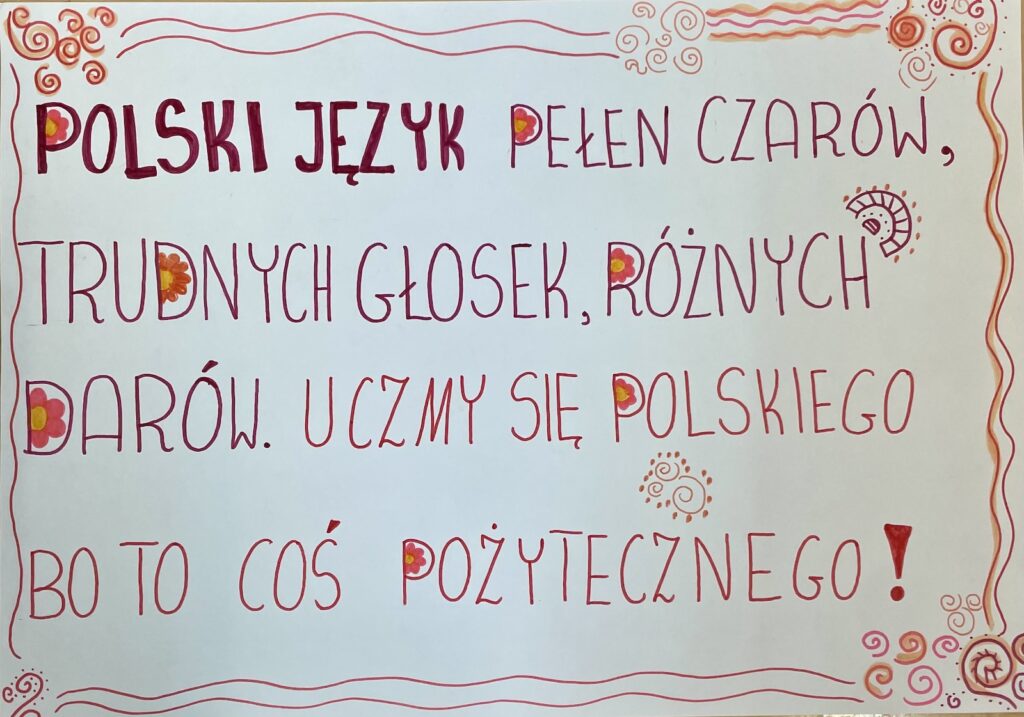 POLSKI JĘZYK PEŁEN CZARÓW,
TRUDNYCH GŁOSEK, RÓŻNYCH
DARÓW. UCZMY SIĘ POLSKIEGO
BO TO COŚ POŻYTECZNEGO!